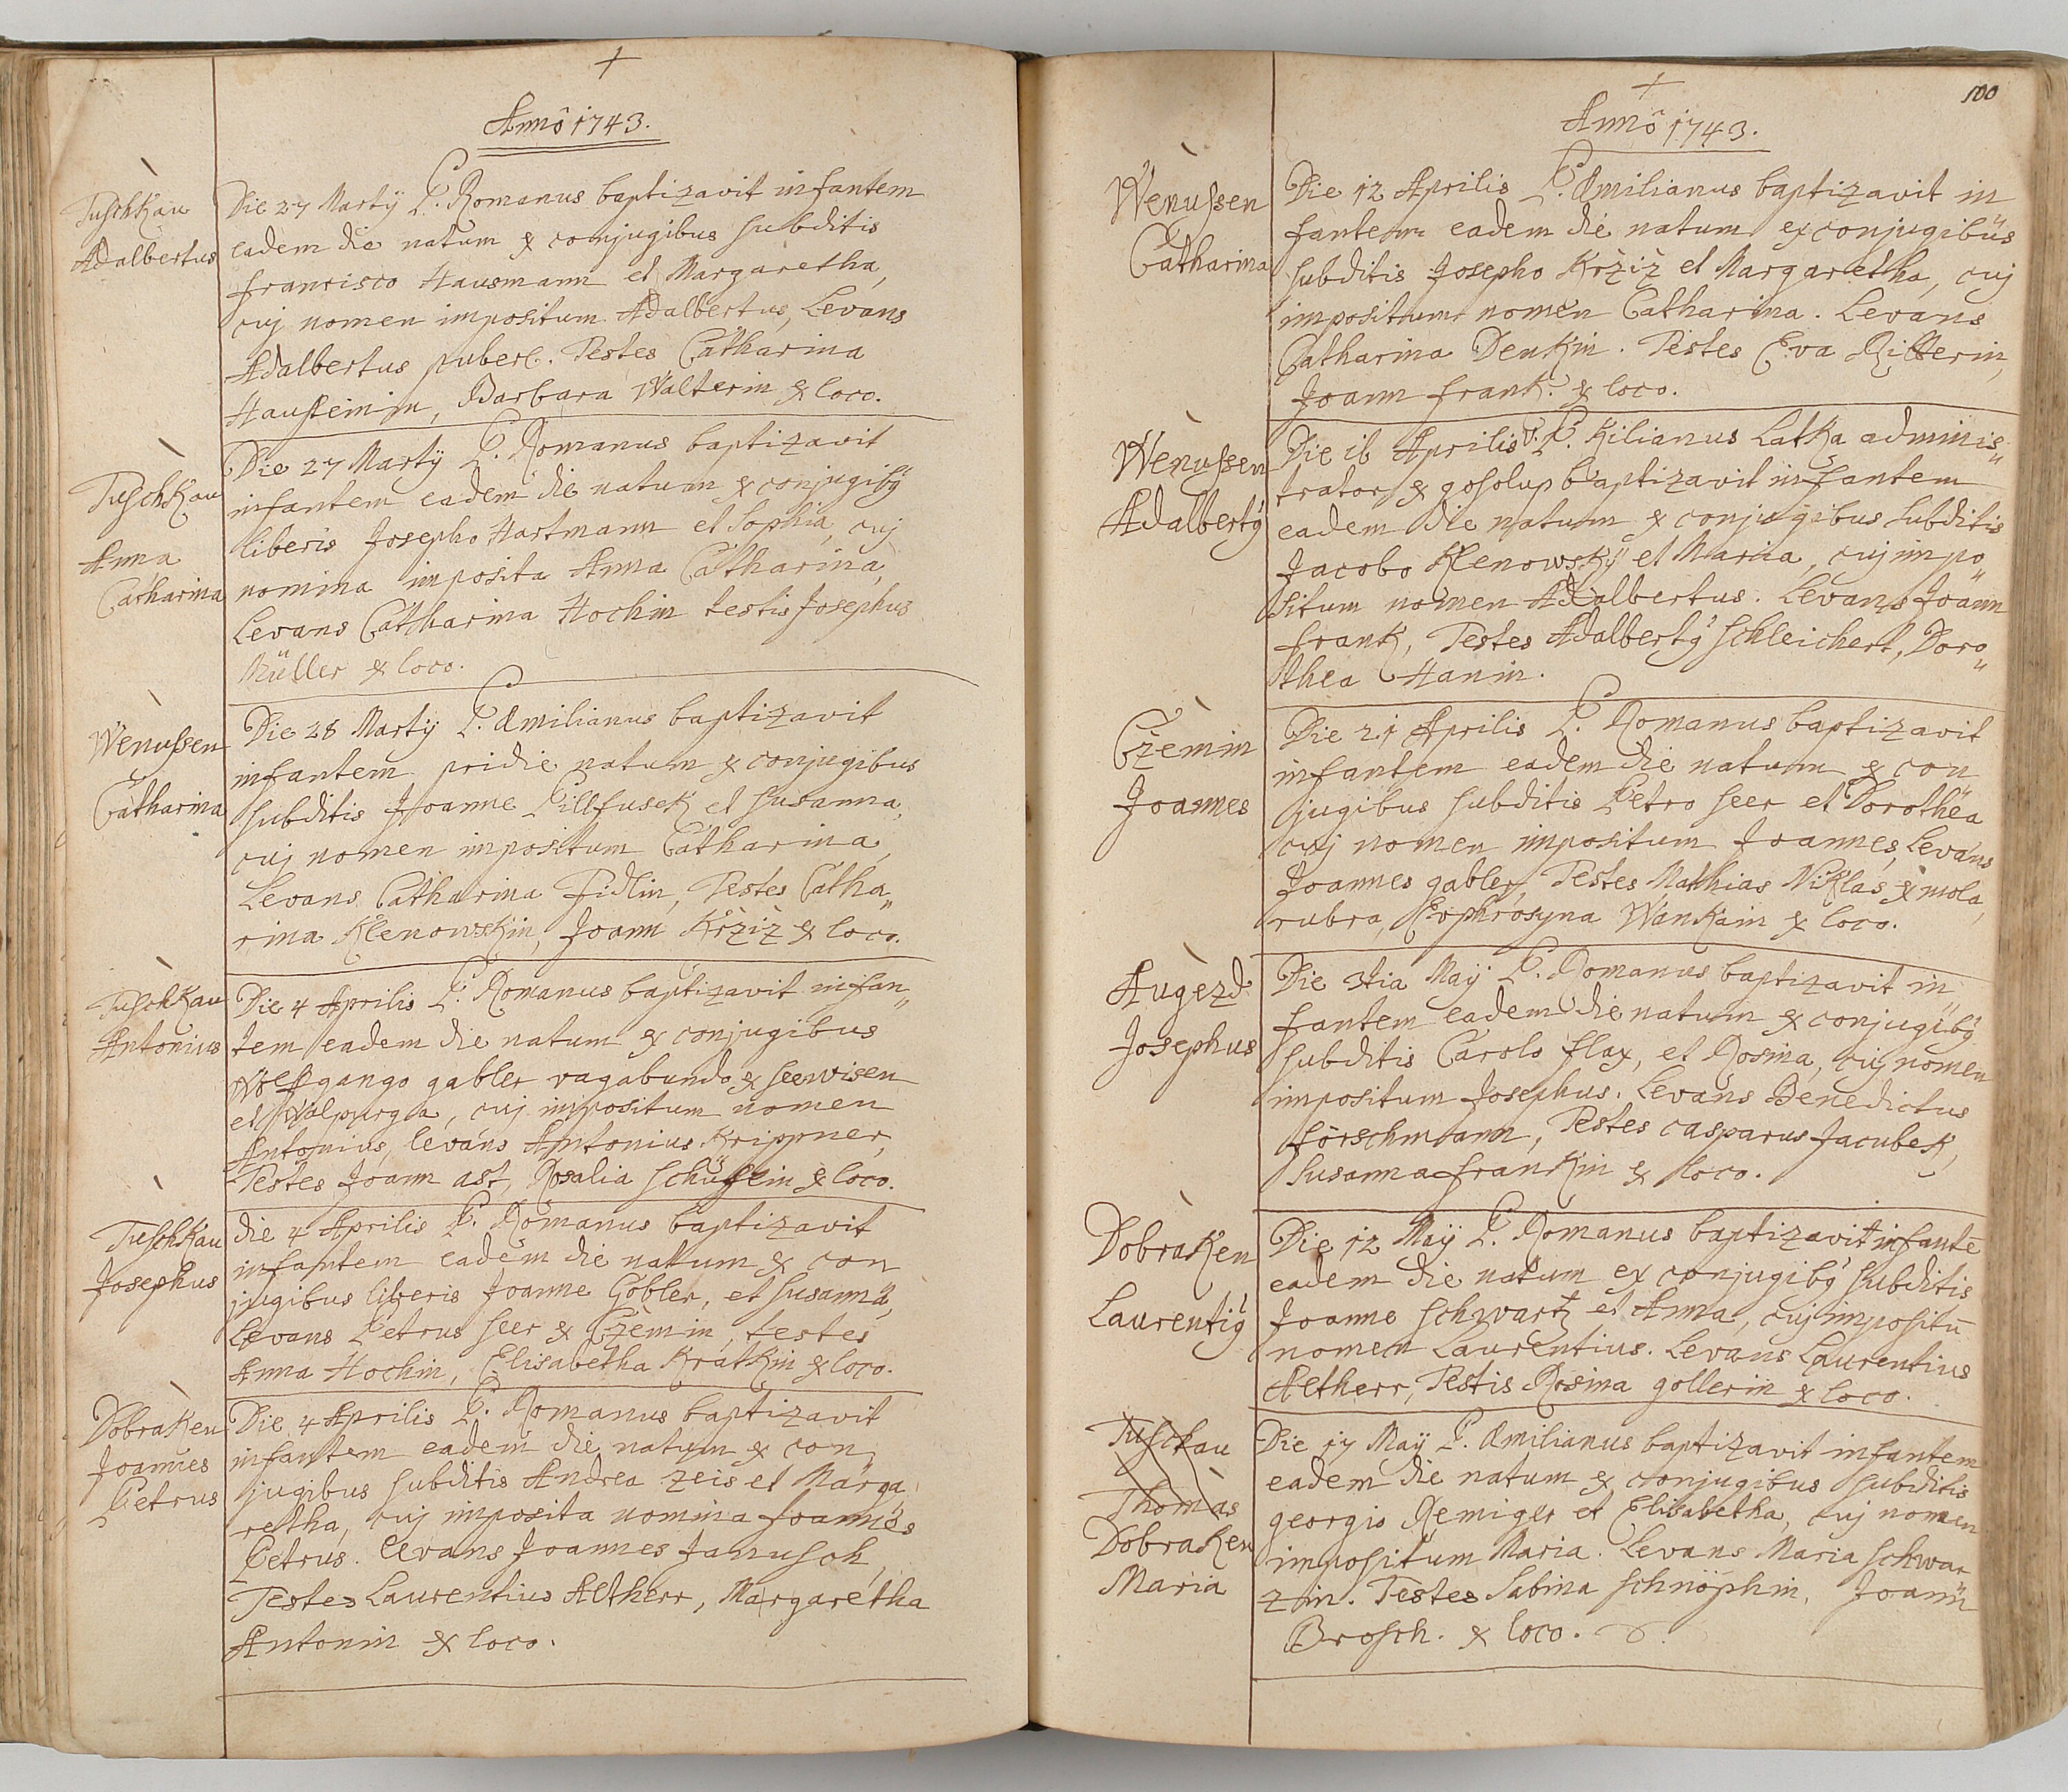 Annô 1743.
Tuschkau
Adalbertus
Die 27 Martÿ P. Romanus baptizavit infantem
eadem die natum ex conjugibus subditis
Francisco Hausmann et Margaretha,
cuj nomen impositum Adalbertus, Levans
Adalbertus puber. Testes Catharina
Barbara Walterin ex loco.
Tuschkau
Anna
Catharina
Die 27 Martÿ P. Romanus baptizavit
infantem eadem die natum ex conjugibÿ
liberis Josepho Hartmann et Sophia, cuj
nomina imposita Anna Catharina,
Levans Catharina Hochin testis Josephus
Müller ex loco.
Wenussen
Catharina
Die 28 Martÿ P. Æmilianus baptizavit
infantem pridie natum ex conjugibus
subditis Joanne Pillfusek et Susanna,
cuj nomen impositum Catharina,
Levans Catharina Fidlin, Testes Catha„
rina Klenowskin, Joann Kržiž ex loco.
Tuschkau
Antonius
Die 4 Aprilis P. Romanus baptizavit infan„
tem eadem die natum ex conjugibus
Wolfgango gabler vagabundo ex seewisen
et Walpurga, cuj impositum nomen
Antonius, levans Antonius Krippner,
Testes Joann ast, Rosalia ex loco.
Tuschkau
Josephus
die 4 Aprilis P. Romanus baptizavit
infantem eadem die natum ex con
jugibus liberis Joanne Gobler, et Susanna,
Levans Petrus seer ex Czemin, testes
Anna Hochin, Elisabetha Kratkin ex loco.
Dobraken
Joannes
Petrus
Die 4 Aprilis P. Romanus baptizavit
infantem eadem die natum ex con
jugibus subditis Andrea Zeis et Marga
retha, cuj imposita nomina Joannes
Petrus. levans Joannes Janusch,
Testes Laurentius Altherr, Margaretha
Antonin ex loco.
100
Annô 1743.
Wenussen
Catharina
Die 12 Aprilis P. Æmilianus baptizavit in
fantem eadem die natum ex conjugibus
subditis Josepho Kržiž et Margaretha, cuj
impositum nomen Catharina. Levans
Catharina Denkin. Testes Eva Ritterin,
Joann frank. ex loco.
Wenussen
Adalbertÿ
Die 16 Aprilis P. P. Kilianus Latka adminis„
trator ex gosolup baptizavit infantem
eadem die natum ex conjugibus subditis
Jacobo Klenowskÿ et Maria, cuj impo„
situm nomen Adalbertus. Levans Joann
frank, Testes Adalbertÿ schleichert, Doro„
thea Hanin.
Czemin
Joannes
Die 21 Aprilis P. Romanus baptizavit
infantem eadem die natum ex con
jugibus subditis Petro seer et Dorothea
cuj nomen impositum Joannes, Levans
Joannes gabler, Testes Mathias Niklas ex mola
rubra, Euphrosyna Wankain ex loco.
Augezd
Josephus
Die 3tia Maÿ P. Romanus baptizavit in„
fantem eadem die natum ex conjugibÿ
subditis Carolo flax, et Rosina, cuj nomen
impositum Josephus. Levans Benedictus
förschmann, Testes casparus Jacubek,
Susanna frankin ex loco.
Dobraken
Laurentiÿ
Die 12 Maÿ P. Romanus baptizavit infantē
eadem die natum ex conjugibÿ subditis
Joanne schwartz et Anna, cuj impositū
nomen Laurentius. Levans Laurentius
Altherr, Testis Rosina gollerin ex loco.
Tuschkau
Thomas
Dobraken
Maria
Die 17 Maÿ P. Æmilianus baptizavit infantem
eadem die natum ex conjugibus subditis
georgio Remiger et Elisabetha, cuj nomen
impositum Maria. Levans Maria schwar
zin. Testes Sabina schnöphin, Joann
Brosch. ex loco.